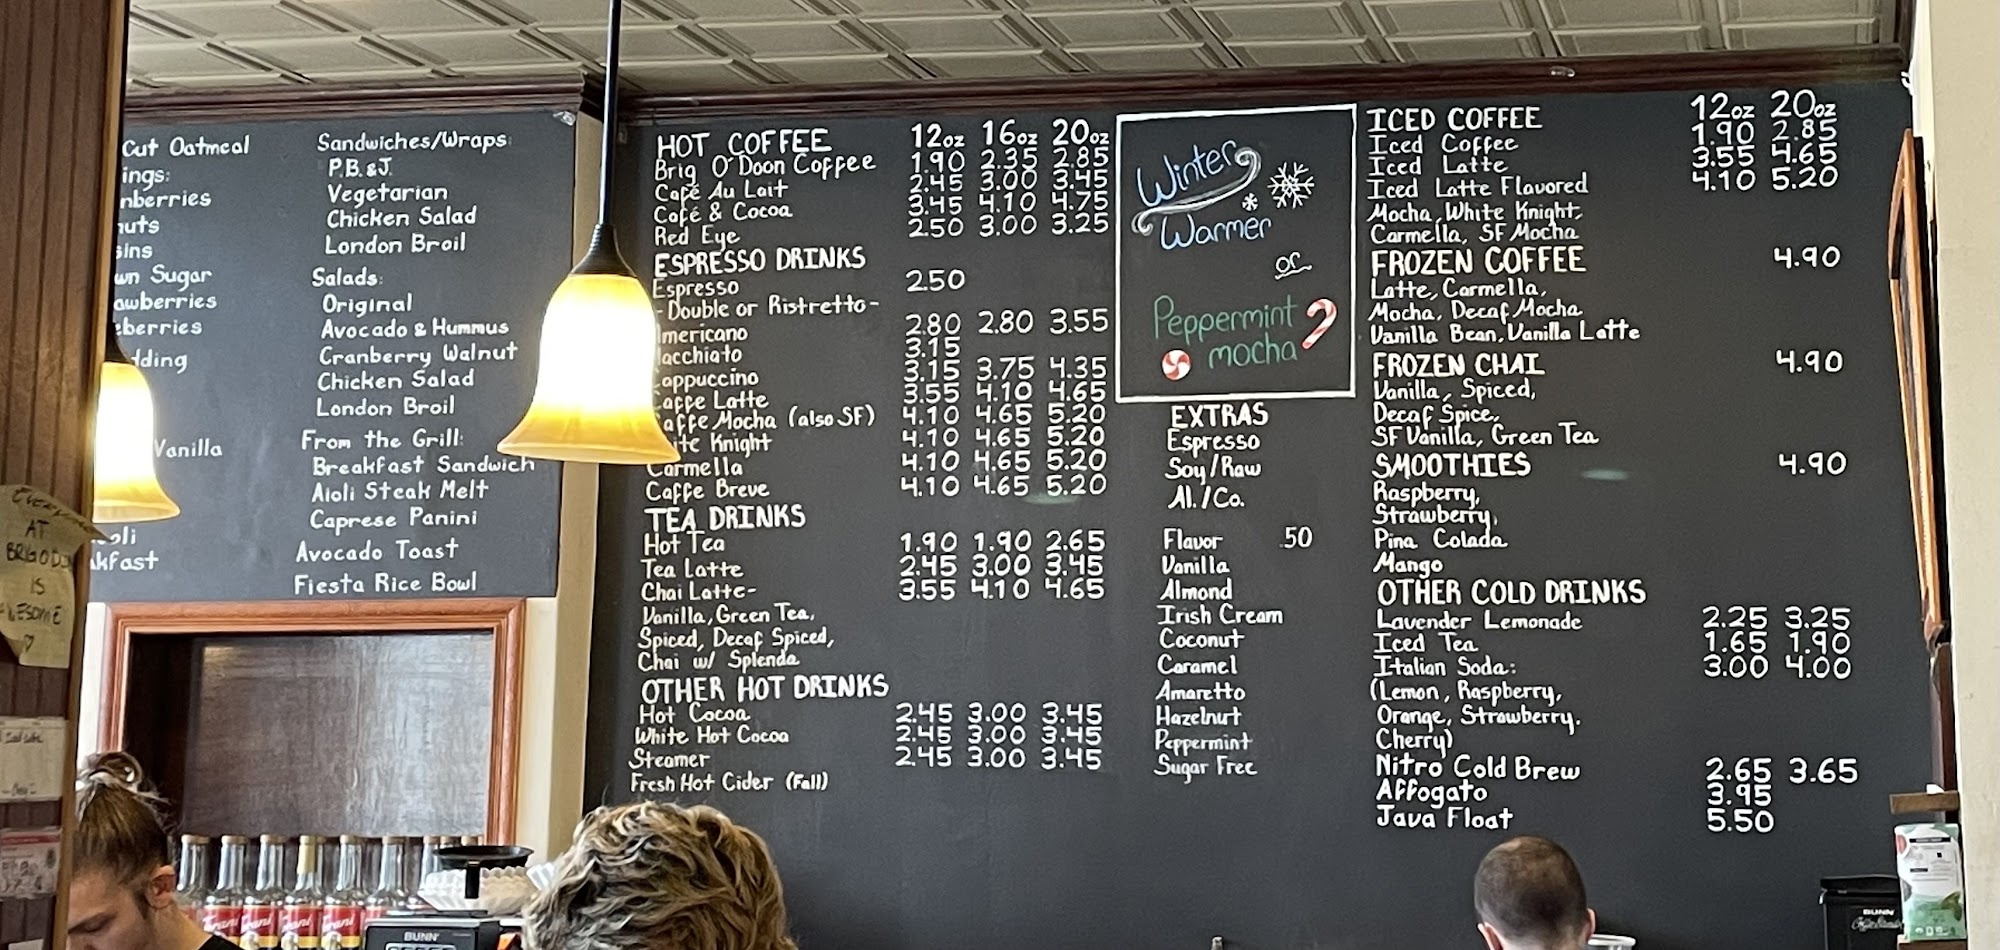 Cut Oatmeal
Brown Sugar
Vanilla
Sandwiches/Wraps:
P.B.&J.
Vegetarian
Chicken Salad
London Broil
Salads:
Original
Avocado & Hummus
Cranberry Walnut
Chicken Salad
London Broil
From the Grill:
Breakfast Sandwich
Aioli Steak Melt
Caprese Panini
Avocado Toast
Fiesta Rice Bowl
AT
IS
HOT COFFEE 12oz 16oz 20oz
Brig O'Doon Coffee 1.90 2.35 2.85
Café Au Lait 2.45 3.00 3.45
Café & Cocoa 3.45 4.10 4.75
Red Eye 2.50 3.00 3.25
ESPRESSO DRINKS
Espresso 2.50
-Double or Ristretto-
Americano 2.80 2.80 3.55
Macchiato 3.15
Cappuccino 3.15 3.75 4.35
Caffe Latte 3.55 4.10 4.65
Caffe Mocha (also SF) 4.10 4.65 5.20
White Knight 4.10 4.65 5.20
Carmella 4.10 4.65 5.20
Caffe Breve 4.10 4.65 5.20
TEA DRINKS
Hot Tea 1.90 1.90 2.65
Tea Latte 2.45 3.00 3.45
Chai Latte- 3.55 4.10 4.65
Vanilla, Green Tea,
Spiced, Decaf Spiced,
Chai w/ Splenda
OTHER HOT DRINKS
Hot Cocoa 2.45 3.00 3.45
White Hot Cocoa 2.45 3.00 3.45
Steamer 2.45 3.00 3.45
Fresh Hot Cider (Fall)
Winter
Warmer
or
Peppermint
mocha
EXTRAS
Espresso
Soy/Raw
Al./Co.
Flavor .50
Vanilla
Almond
Irish Cream
Coconut
Caramel
Amaretto
Hazelnut
Peppermint
Sugar Free
ICED COFFEE 12oz 20oz
Iced Coffee 1.90 2.85
Iced Latte 3.55 4.65
Iced Latte Flavored 4.10 5.20
Mocha, White Knight,
Carmella, SF Mocha
FROZEN COFFEE 4.90
Latte, Carmella,
Mocha, Decaf Mocha
Vanilla Bean, Vanilla Latte
FROZEN CHAI 4.90
Vanilla, Spiced,
Decaf Spice,
SF Vanilla, Green Tea
SMOOTHIES 4.90
Raspberry,
Strawberry,
Pina Colada
Mango
OTHER COLD DRINKS
Lavender Lemonade 2.25 3.25
Iced Tea 1.65 1.90
Italian Soda: 3.00 4.00
(Lemon, Raspberry,
Orange, Strawberry,
Cherry)
Nitro Cold Brew 2.65 3.65
Affogato 3.95
Java Float 5.50
BUNN
BUNN